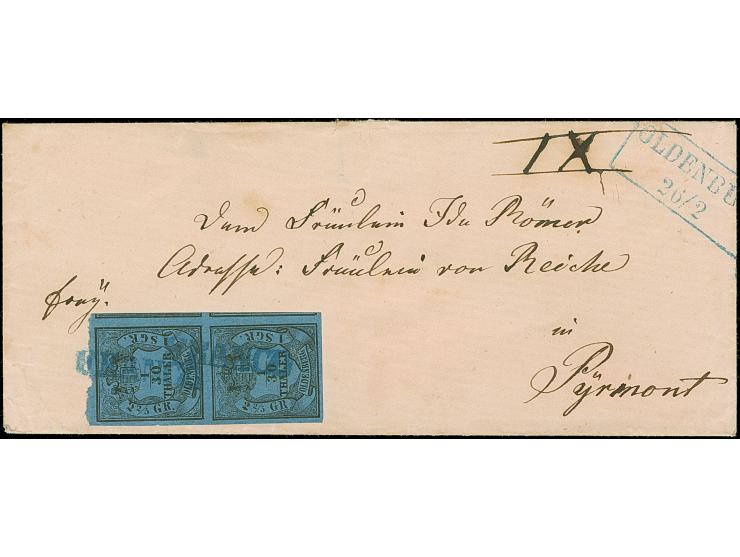 IX
OLDENBU
26/2
Dem Fräulein Ida Römer
Adresse: Fräulein von Reiche
in
Pyrmont
1 SGR. 1 SGR.
1/30 THALER 1/30 THALER
OLDENBURG. OLDENBURG.
2 2/5 GR. 2 2/5 GR.